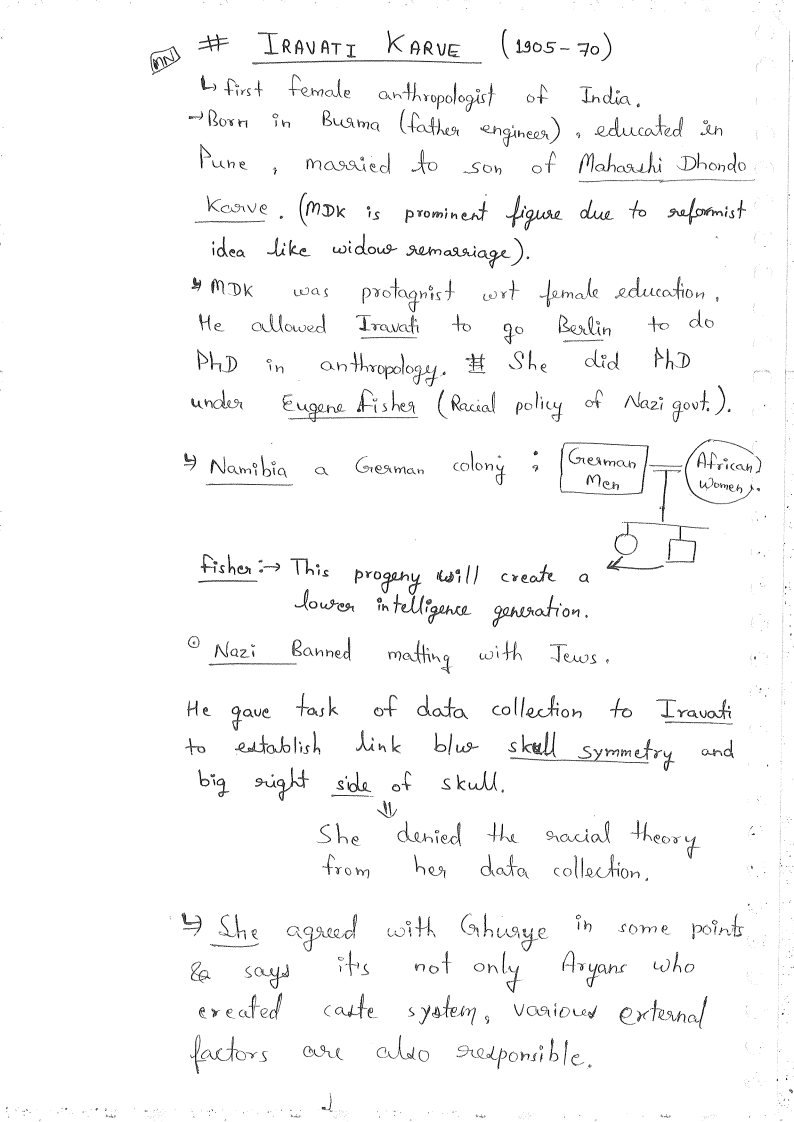 MN
# IRAVATI KARVE (1905-70)
↳ first female anthropologist of India.
→ Born in Burma (father engineer), educated in
Pune, married to son of Maharshi Dhondo
Karve. (MDK is prominent figure due to reformist
idea like widow remarriage).
↳ MDK was protagnist wrt female education.
He allowed Iravati to go Berlin to do
PhD in anthropology. # She did PhD
under Eugene Fisher (Racial policy of Nazi govt.).
↳ Namibia a German colony :
German
Men
African
Women
Fisher:→ This progeny will create a
lower intelligence generation.
⊙ Nazi Banned matting with Jews.
He gave task of data collection to Iravati
to establish link b/w skull symmetry and
big right side of skull.
⇓
She denied the racial theory
from her data collection.
↳ She agreed with Ghurye in some points
& says it's not only Aryans who
created caste system, various external
factors are also responsible.